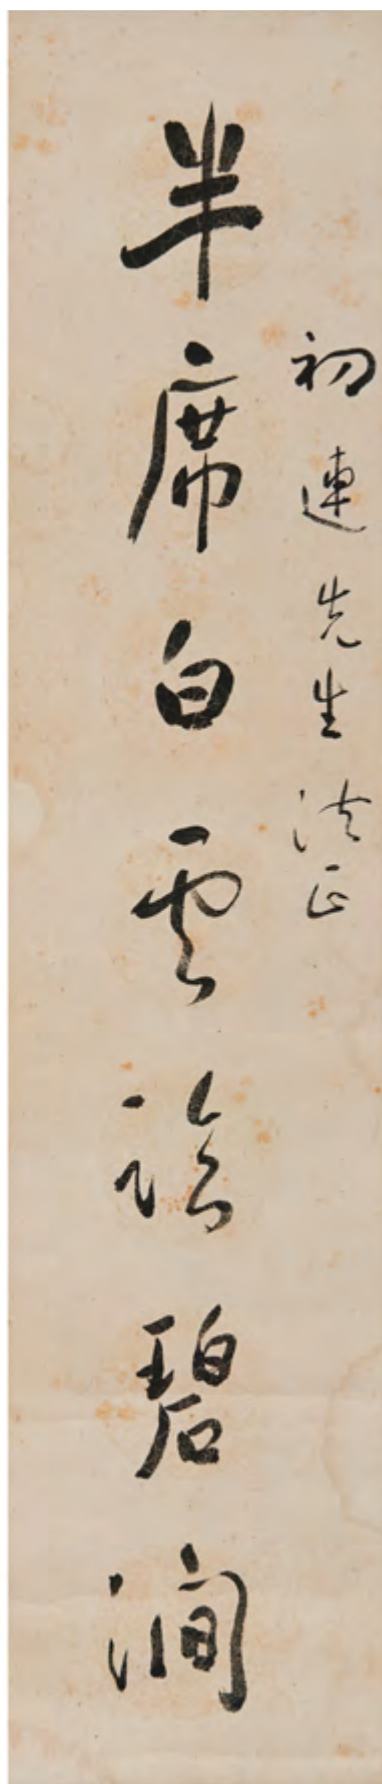 初連先生法正
半席白雲碧澗